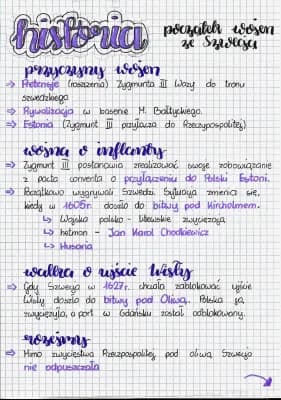 historia
początek wojen
ze Szwecją
przyczyny wojen
⇒ Pretensje (roszczenia) Zygmunta III Wazy do tronu
szwedzkiego
⇒ Rywalizacja w basenie M. Bałtyckiego.
⇒ Estonia (Zygmunt III przyłącza do Rzeczypospolitej)
wojna o inflanty
⇒ Zygmunt III postanawia zrealizować swoje zobowiązanie
z pacta conventa o przyłączeniu do Polski Estonii.
⇒ Początkowo wygrywali Szwedzi. Sytuacja zmienia się,
kiedy w 1605r. doszło do bitwy pod Kircholmem.
↳ Wojska polsko - litewskie zwyciężają
↳ hetman - Jan Karol Chodkiewicz
↳ Husaria
walka o ujście Wisły
⇒ Gdy Szwecja w 1627r. chciała zablokować ujście
Wisły doszło do bitwy pod Oliwą. Polska ją
zwyciężyła, a port w Gdańsku został odblokowany.
rozejmy
⇒ Mimo zwycięstwa Rzeczpospolitej pod oliwą Szwecja
nie odpuszczała